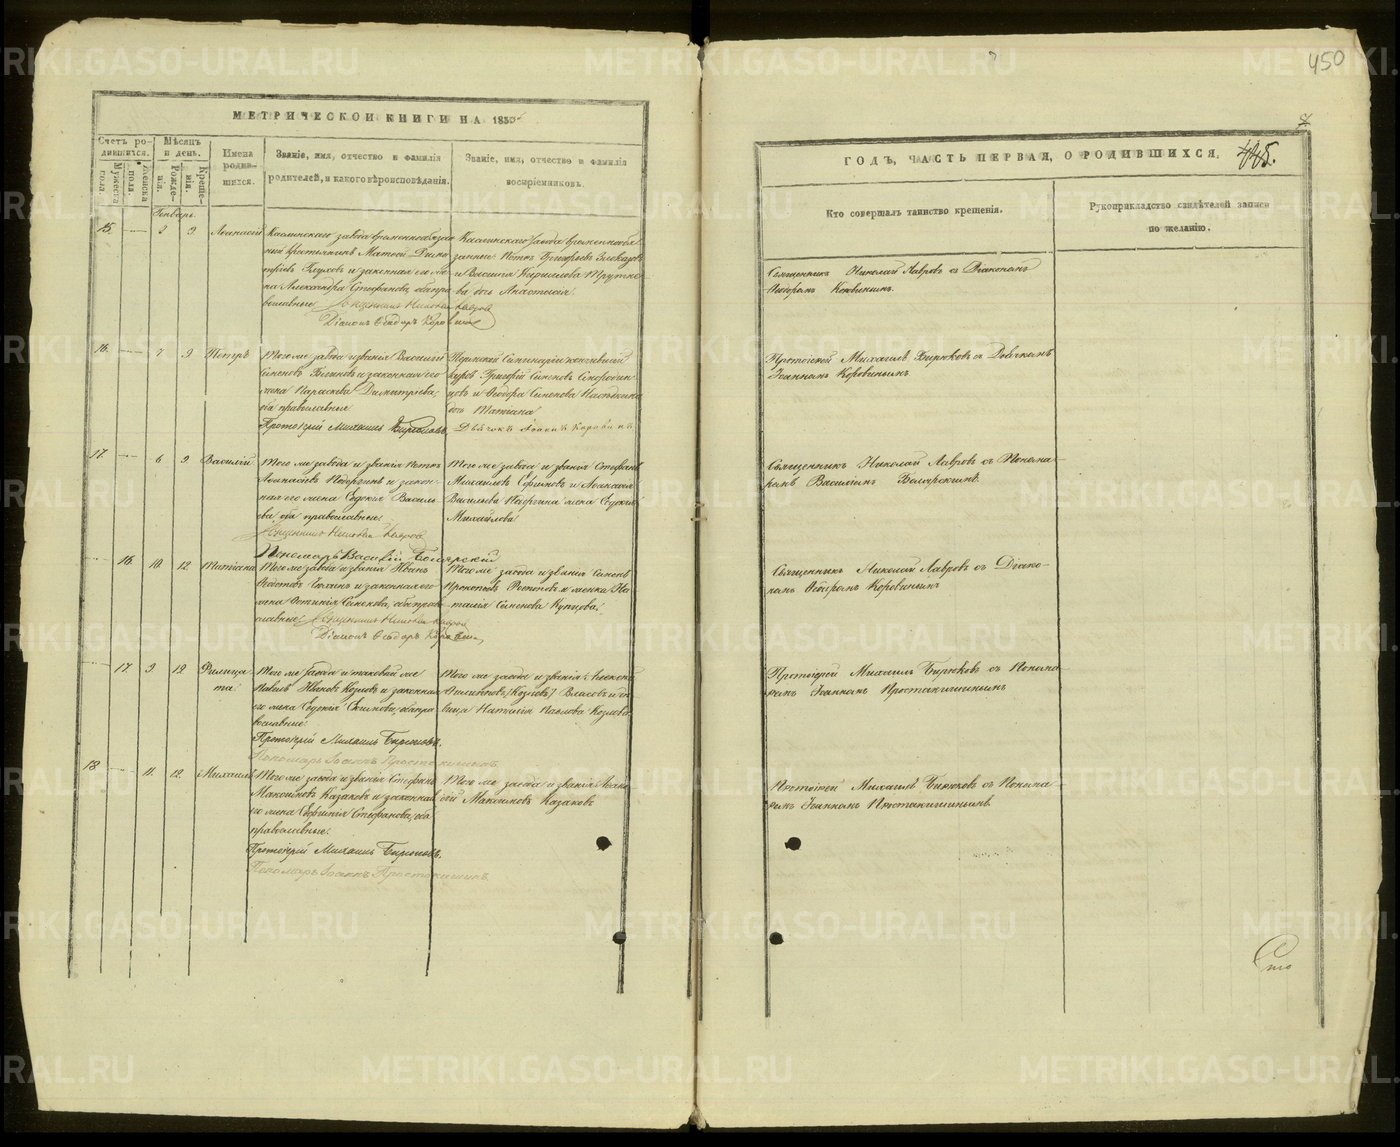 450
МЕТРИЧЕСКОЙ КНИГИ НА 185
Счетъ ро-
дившихся.
Мужеска
пола.
Женска
пола.
Мѣсяцъ
и день.
Рожде-
нія.
Креще-
нія.
Имена
родив-
шихся.
Званіе, имя, отчество и фамилія
родителей, и какого вѣроисповѣданія.
Званіе, имя, отчество и фамилія
воспріемниковъ.
Генварь.
15. 2 9. Аѳанасій
Каслинскаго завода временнообяза
ный крестьянинъ Матѳей Дими
тріевъ Глуховъ и законная его же
на Александра Стефанова, оба пра
вославные
Священникъ Николай Лавровъ
Діаконъ Ѳеодоръ Коровинъ
Каслинскаго завода временнообя
занные Петръ Григорьевъ
и Васильи Кириллова
ва дочь Анастасія
16. 7 9 Петръ
Того же завода и званія Василій
Симеоновъ Блиновъ и законная его
жена Параскева Димитріева,
оба православные
Протоіерей Михаилъ Бирюковъ
Пермской Семинаріи кончившій
курсъ Григорій Симеоновъ
и Ѳеодора Симеонова
дочь Татіана
Дьячокъ Іоаннъ Коровинъ
17. 6 9. Василій
Того же завода и званія Петръ
Аѳанасіевъ и закон-
ная его жена Евдокія Василь
ева оба православные
Священникъ Николай Лавровъ
Пономарь Василій Боярскій
Того же завода и званія Стефанъ
Михайловъ и Аѳанасія
Васильева жена Евдокія
Михайлова
16. 10. 12 Татіана
Того же завода и званія Иванъ
Ѳедотовъ и законная его
жена Устинія Симеонова, оба право
славные.
Священникъ Николай Лавровъ
Діаконъ Ѳеодоръ Коровинъ
Того же завода и званія Симеонъ
Прокопьевъ и женка На
талія Симеонова Купцова.
17. 9. 12 Филица
та.
Того же завода и таковый же
Павелъ Ивановъ Козловъ и законная
его жена Евдокія оба пра
вославные.
Протоіерей Михаилъ Бирюковъ.
Пономарь Іоаннъ Простакишинъ
Того же завода и званія Алексій
(Козловъ) Власовъ и дѣ
вица Наталія Павлова Козлова
18. 11. 12. Михаилъ
Того же завода и званія Стефанъ
Максимовъ Казаковъ и законная
его жена Евфимія Стефанова, оба
православные.
Протоіерей Михаилъ Бирюковъ.
Пономарь Іоаннъ Простакишинъ
Того же завода и званія Аѳана
сій Максимовъ Казаковъ
ГОДЪ, ЧАСТЬ ПЕРВАЯ, О РОДИВШИХСЯ.
Кто совершалъ таинство крещенія.
Рукоприкладство свидѣтелей записи
по желанію.
Священникъ Николай Лавровъ съ Діакономъ
Ѳеодоромъ Коровинымъ.
Протоіерей Михаилъ Бирюковъ съ Дьячкомъ
Іоанномъ Коровинымъ
Священникъ Николай Лавровъ съ Понома-
ремъ Василіемъ Боярскимъ.
Священникъ Николай Лавровъ съ Діако-
номъ Ѳеодоромъ Коровинымъ
Протоіерей Михаилъ Бирюковъ съ Понома-
ремъ Іоанномъ Простакишинымъ
Протоіерей Михаилъ Бирюковъ съ Понома-
ремъ Іоанномъ Простакишинымъ
Сто
METRIKI.GASO-URAL.RU